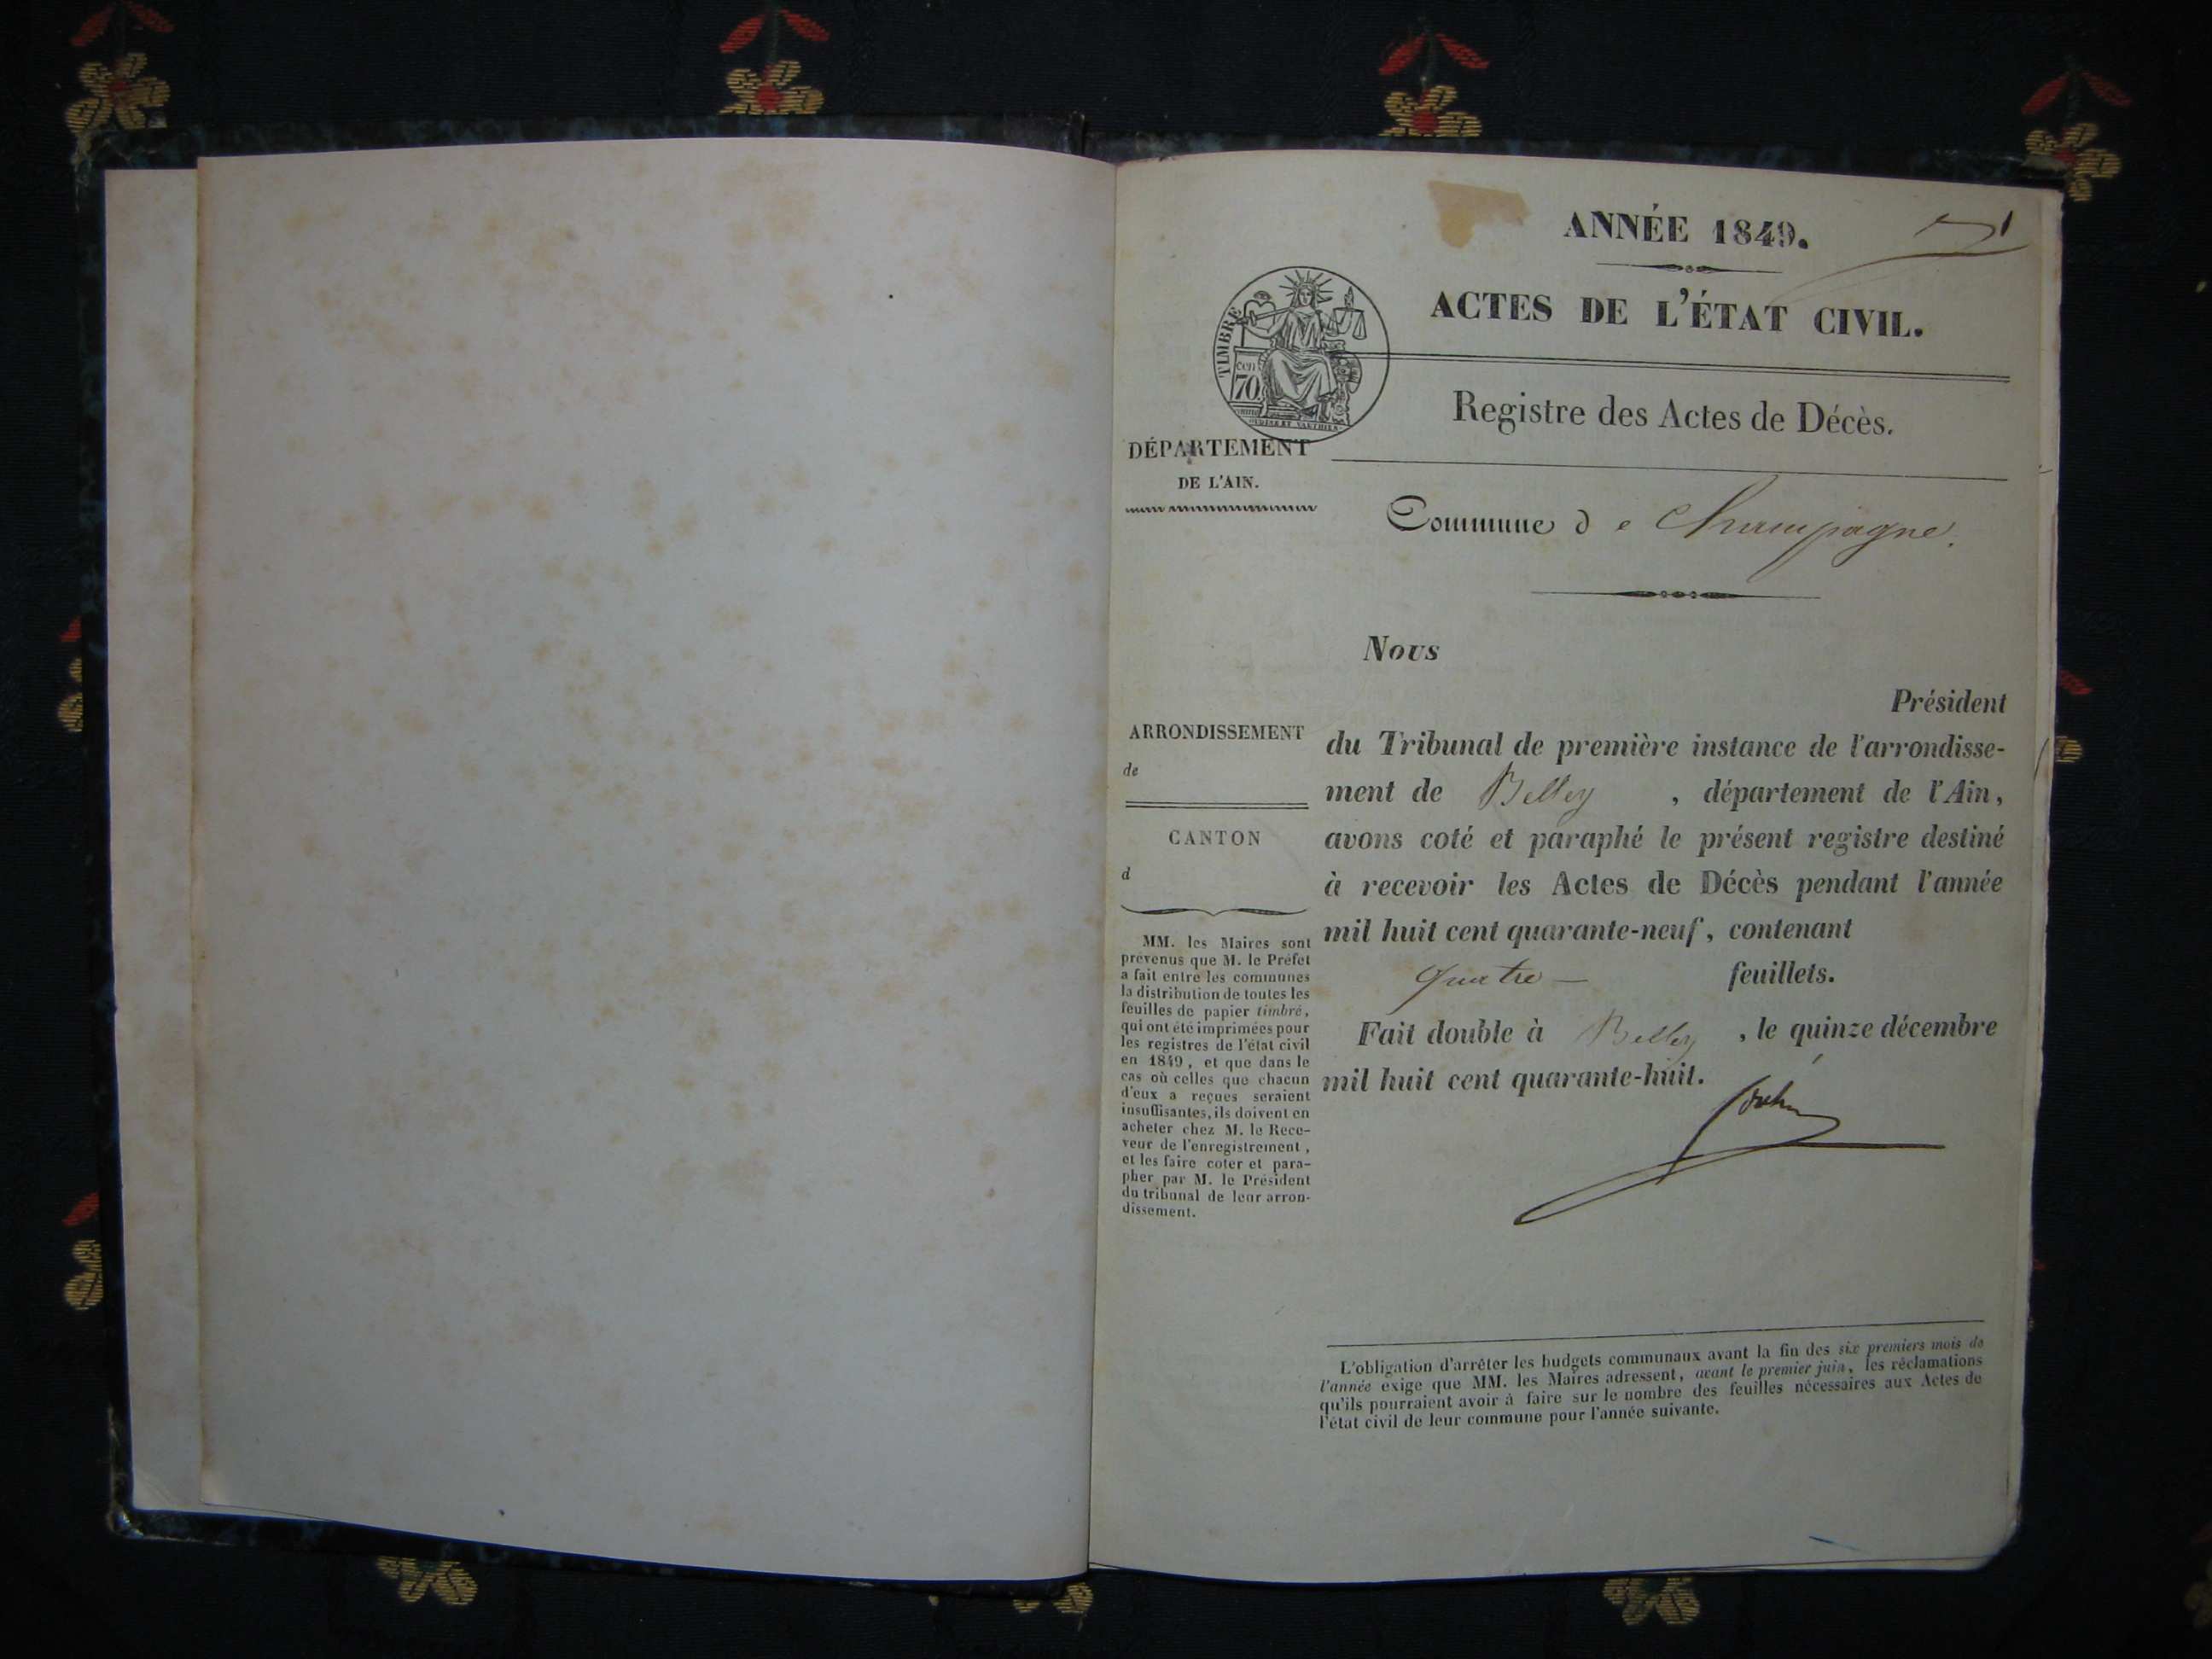 ANNÉE 1849.
1
ACTES DE L'ÉTAT CIVIL.
TIMBRE
70
Registre des Actes de Décès.
DÉPARTEMENT
DE L'AIN.
Commune de Champagne.
Nous
Président
du Tribunal de première instance de l'arrondisse-
ment de Belley , département de l'Ain,
avons coté et paraphé le présent registre destiné
à recevoir les Actes de Décès pendant l'année
mil huit cent quarante-neuf, contenant
quatre — feuillets.
Fait double à Belley , le quinze décembre
mil huit cent quarante-huit.
ARRONDISSEMENT
de
CANTON
d
MM. les Maires sont
prévenus que M. le Préfet
a fait entre les communes
la distribution de toutes les
feuilles de papier timbré,
qui ont été imprimées pour
les registres de l'état civil
en 1849, et que dans le
cas où celles que chacun
d'eux a reçues seraient
insuffisantes, ils doivent en
acheter chez M. le Rece-
veur de l'enregistrement,
et les faire coter et para-
pher par M. le Président
du tribunal de leur arron-
dissement.
L'obligation d'arrêter les budgets communaux avant la fin des six premiers mois de
l'année exige que MM. les Maires adressent, avant le premier juin, les réclamations
qu'ils pourraient avoir à faire sur le nombre des feuilles nécessaires aux Actes de
l'état civil de leur commune pour l'année suivante.